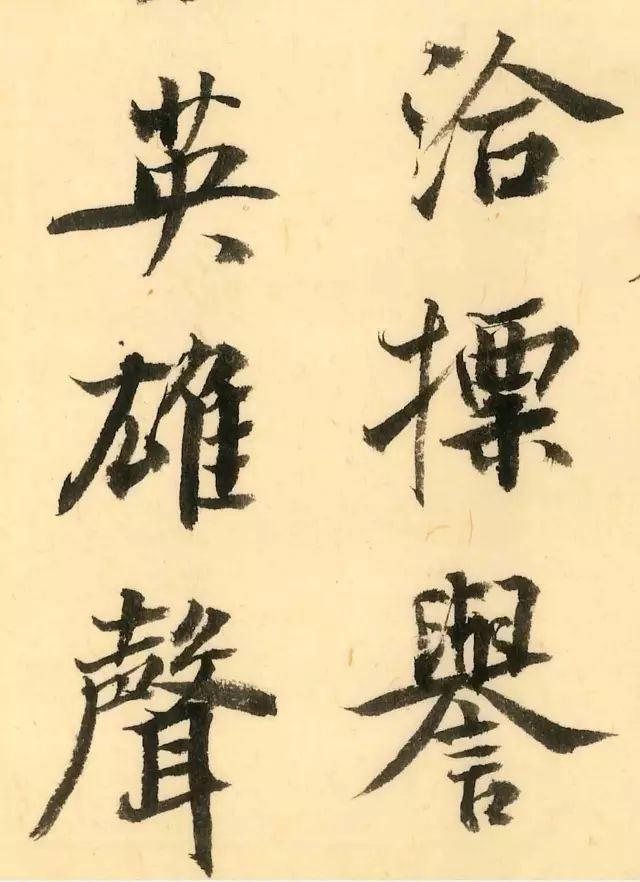 洽摽譽
英雄聲